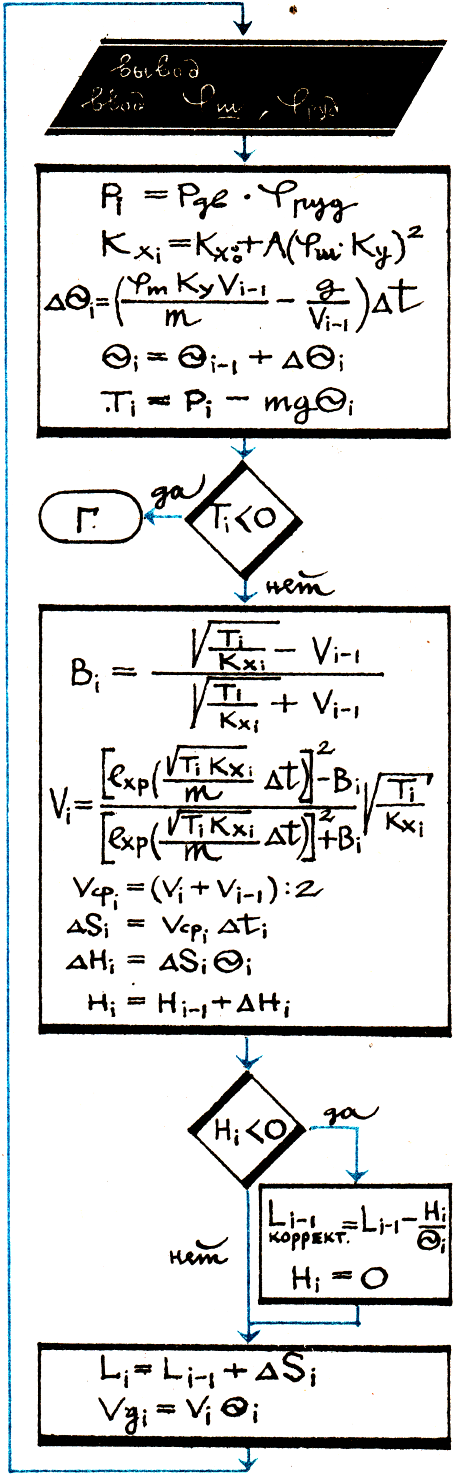 вывод
ввод φш , φруд
Pi = Pдв · φруд
Kxi = Kx0 + A(φш · Ky)²
ΔΘi = (φm Ky Vi-1 / m − g / Vi-1) Δt
Θi = Θi-1 + ΔΘi
Ti = Pi − mgΘi
да
Г
Ti < 0
нет
Bi = (√(Ti / Kxi) − Vi-1) / (√(Ti / Kxi) + Vi-1)
Vi = ([exp(√(Ti Kxi) / m Δt)]² − Bi) / ([exp(√(Ti Kxi) / m Δt)]² + Bi) √(Ti / Kxi)
Vсрi = (Vi + Vi-1) : 2
ΔSi = Vсрi Δti
ΔHi = ΔSi Θi
Hi = Hi-1 + ΔHi
Hi < 0
да
Li-1 коррект. = Li-1 − Hi / Θi
Hi = 0
нет
Li = Li-1 + ΔSi
Vyi = Vi Θi